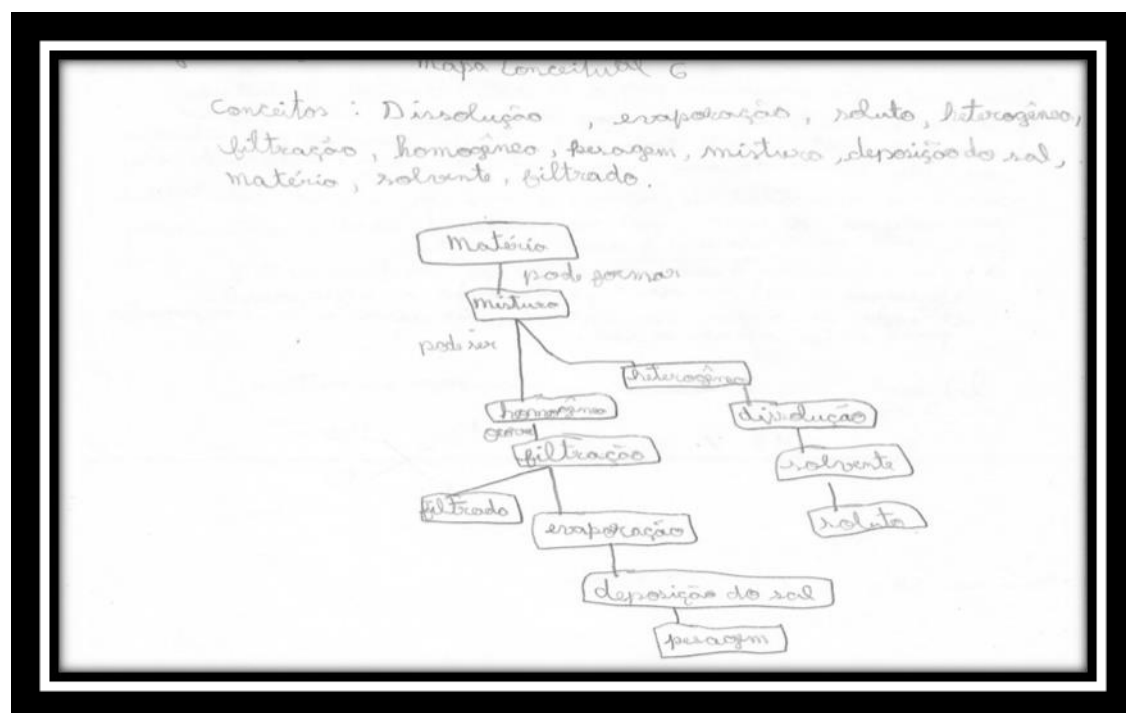 Mapa Conceitual 6
Conceitos : Dissolução , evaporação, soluto, heterogêneo,
filtração, homogêneo, pesagem, mistura, deposição do sal,
matéria, solvente, filtrado.
Matéria
pode formar
mistura
pode ser
heterogêneo
homogêneo
dissolução
ocorre
filtração
solvente
filtrado
evaporação
soluto
deposição do sal
pesagem